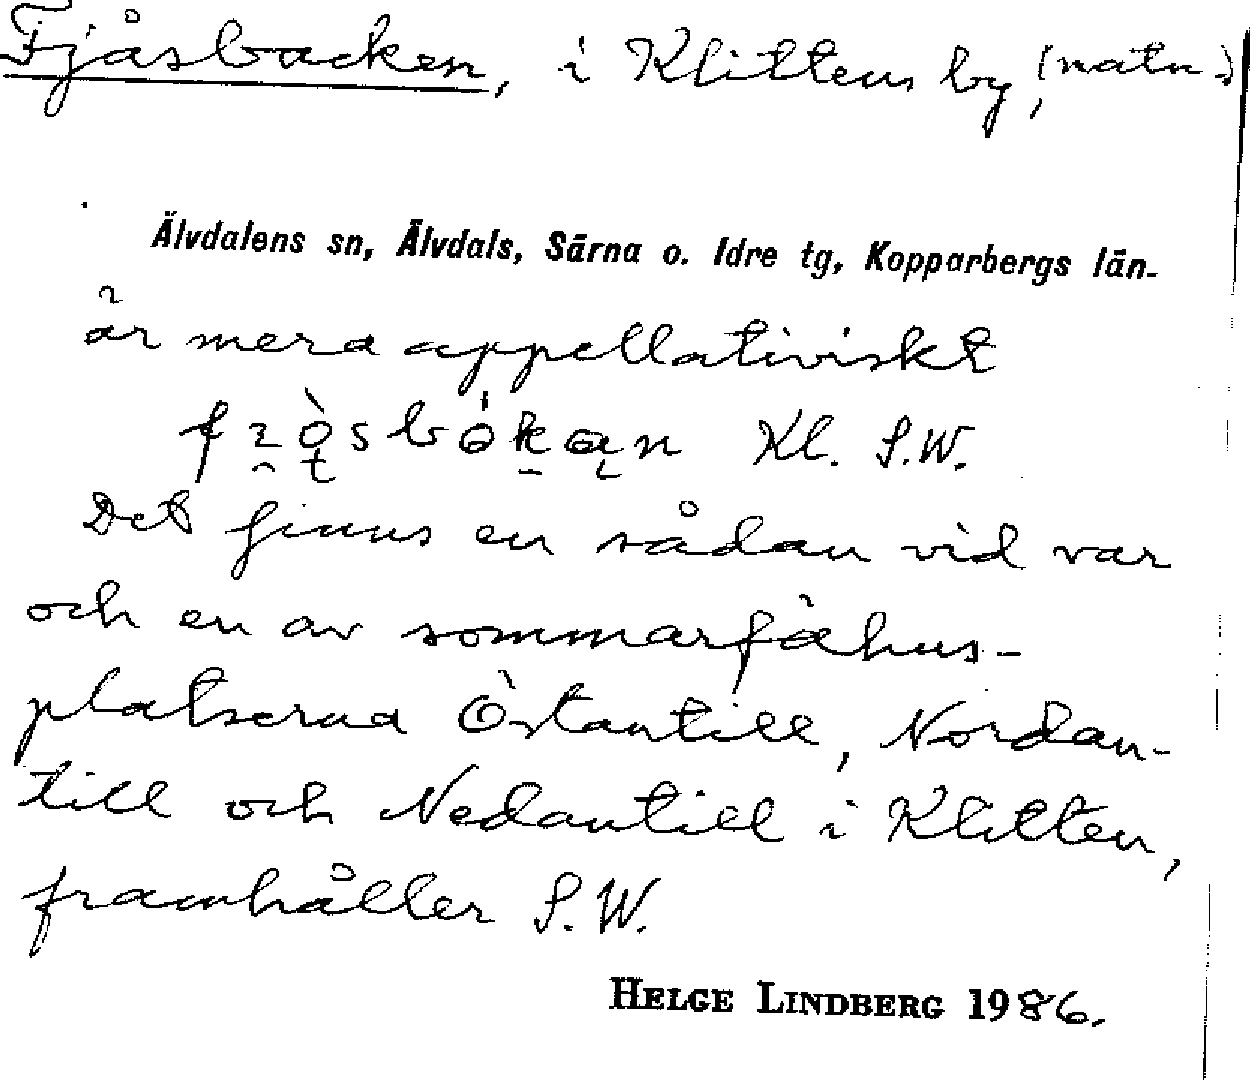 Fjåsbacken, i Klittens by, (natn.)
Älvdalens sn, Älvdals, Särna o. Idre tg, Kopparbergs län.
är mera appellativiskt
Kl. S.W.
Det finns en sådan vid var
och en av sommarfähus-
platserna Östantill, Nordan-
till och Nedantill i Klitten,
framhåller S.W.
HELGE LINDBERG 1986.